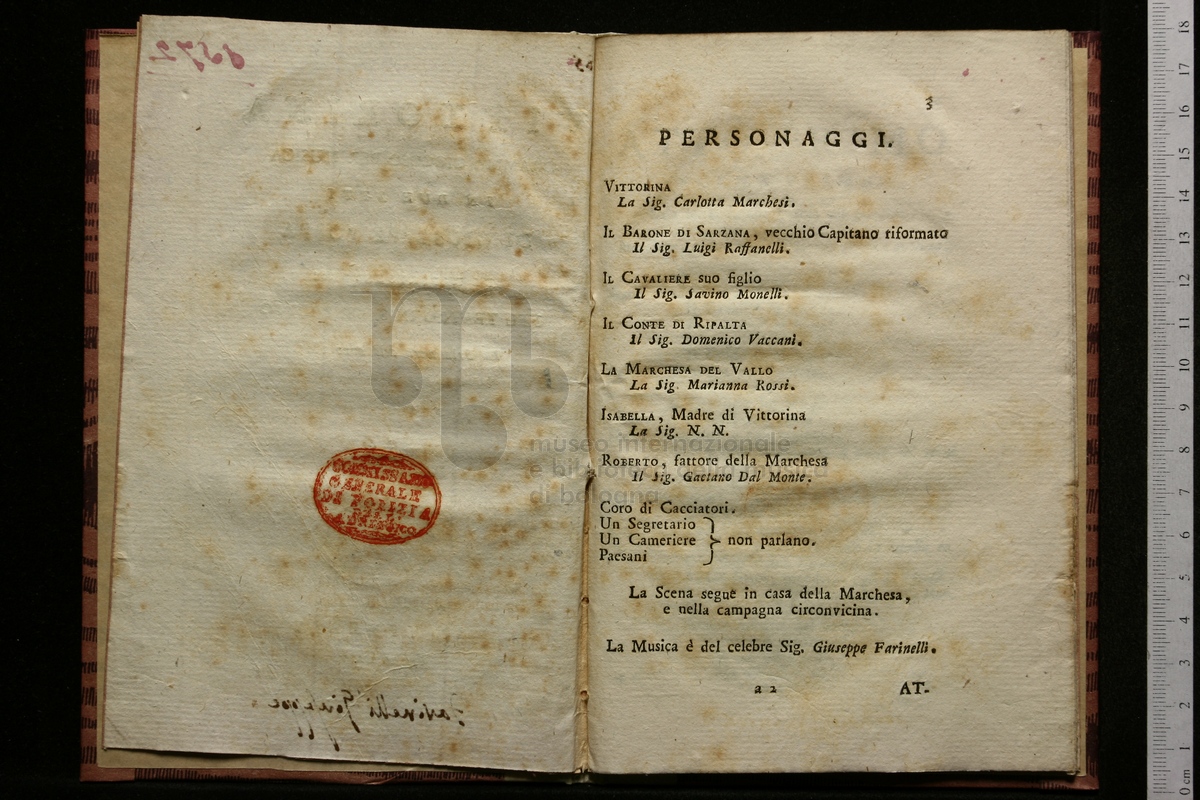 3
PERSONAGGI.
VITTORINA
La Sig. Carlotta Marchesi.
IL BARONE DI SARZANA, vecchio Capitano riformato
Il Sig. Luigi Raffanelli.
IL CAVALIERE suo figlio
Il Sig. Savino Monelli.
IL CONTE DI RIPALTA
Il Sig. Domenico Vaccani.
LA MARCHESA DEL VALLO
La Sig. Marianna Rossi.
ISABELLA, Madre di Vittorina
La Sig. N. N.
ROBERTO, fattore della Marchesa
Il Sig. Gaetano Dal Monte.
Coro di Cacciatori.
Un Segretario
Un Cameriere } non parlano.
Paesani
La Scena segue in casa della Marchesa,
e nella campagna circonvicina.
La Musica è del celebre Sig. Giuseppe Farinelli.
a 2 AT-
GENERALE
DI POLIZIA
museo internazionale
e biblioteca della musica
di bologna
Farinelli Giuseppe
8572
0 cm 1 2 3 4 5 6 7 8 9 10 11 12 13 14 15 16 17 18